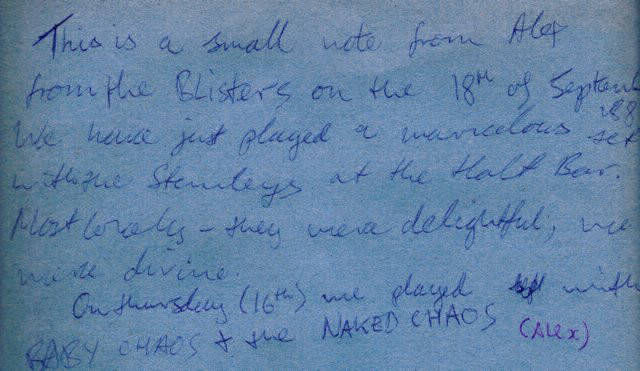 This is a small note from Alex
from the BListers on the 18TH of Septem
We have just played a marvelous set
with the Stemleys at the Halt Bar.
Most lovely - they were delightful, we
were divine.
On thursday (16th) we played with
BABY CHAOS + the NAKED CHAOS (Alex)